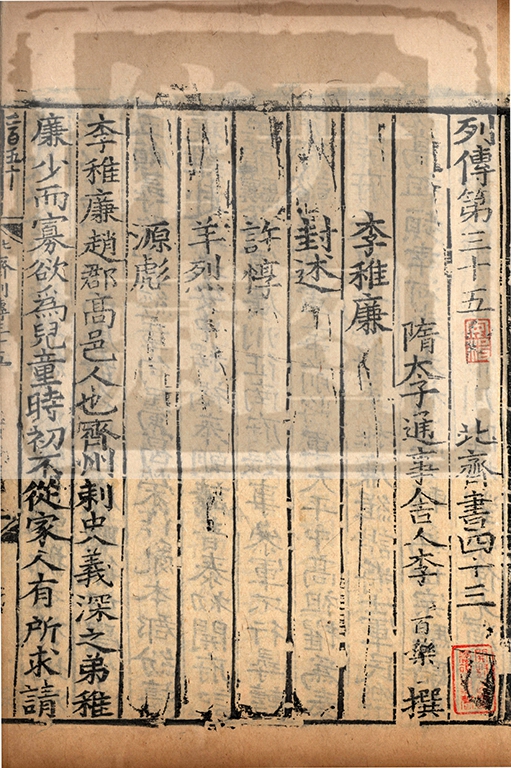 列傳第三十五 北齊書四十三
隋太子通事舍人李 百藥 撰
李稚廉
封述
許惇
羊烈
源彪
李稚廉趙郡高邑人也齊州刺史義深之弟稚
廉少而寡欲爲兒童時初不從家人有所求請